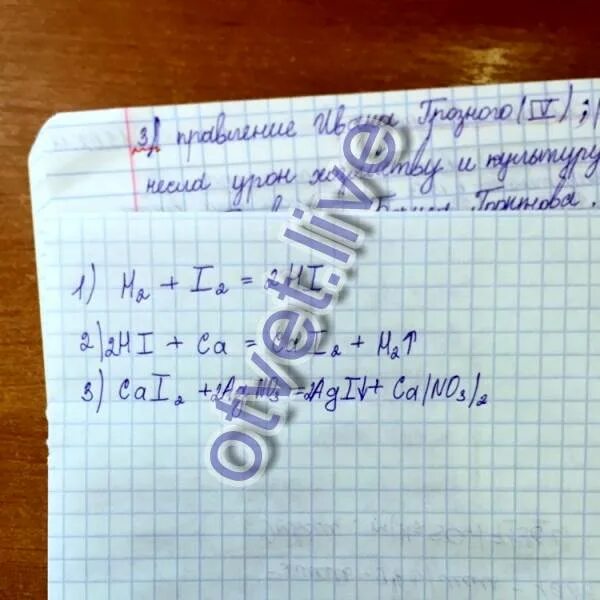 3) правление Ивана Грозного (IV);
несла урон хозяйству и культуру
1) H₂ + I₂ = 2HI
2) 2HI + Ca = CaI₂ + H₂↑
3) CaI₂ + 2AgNO₃ = 2AgI↓ + Ca(NO₃)₂
otvet.live